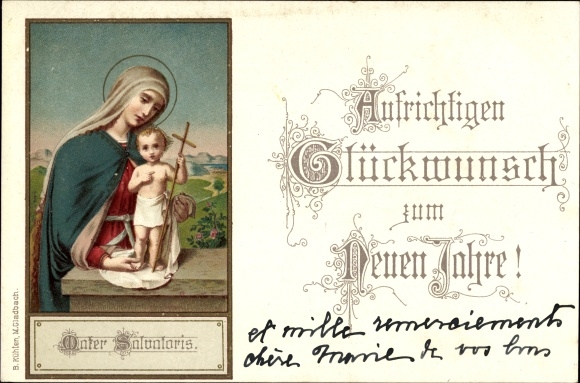 Aufrichtigen
Glückwunsch
zum
Neuen Jahre!
Mater Salvatoris.
B. Kühlen, M. Gladbach.
et mille remerciements
chère Marie de vos bons